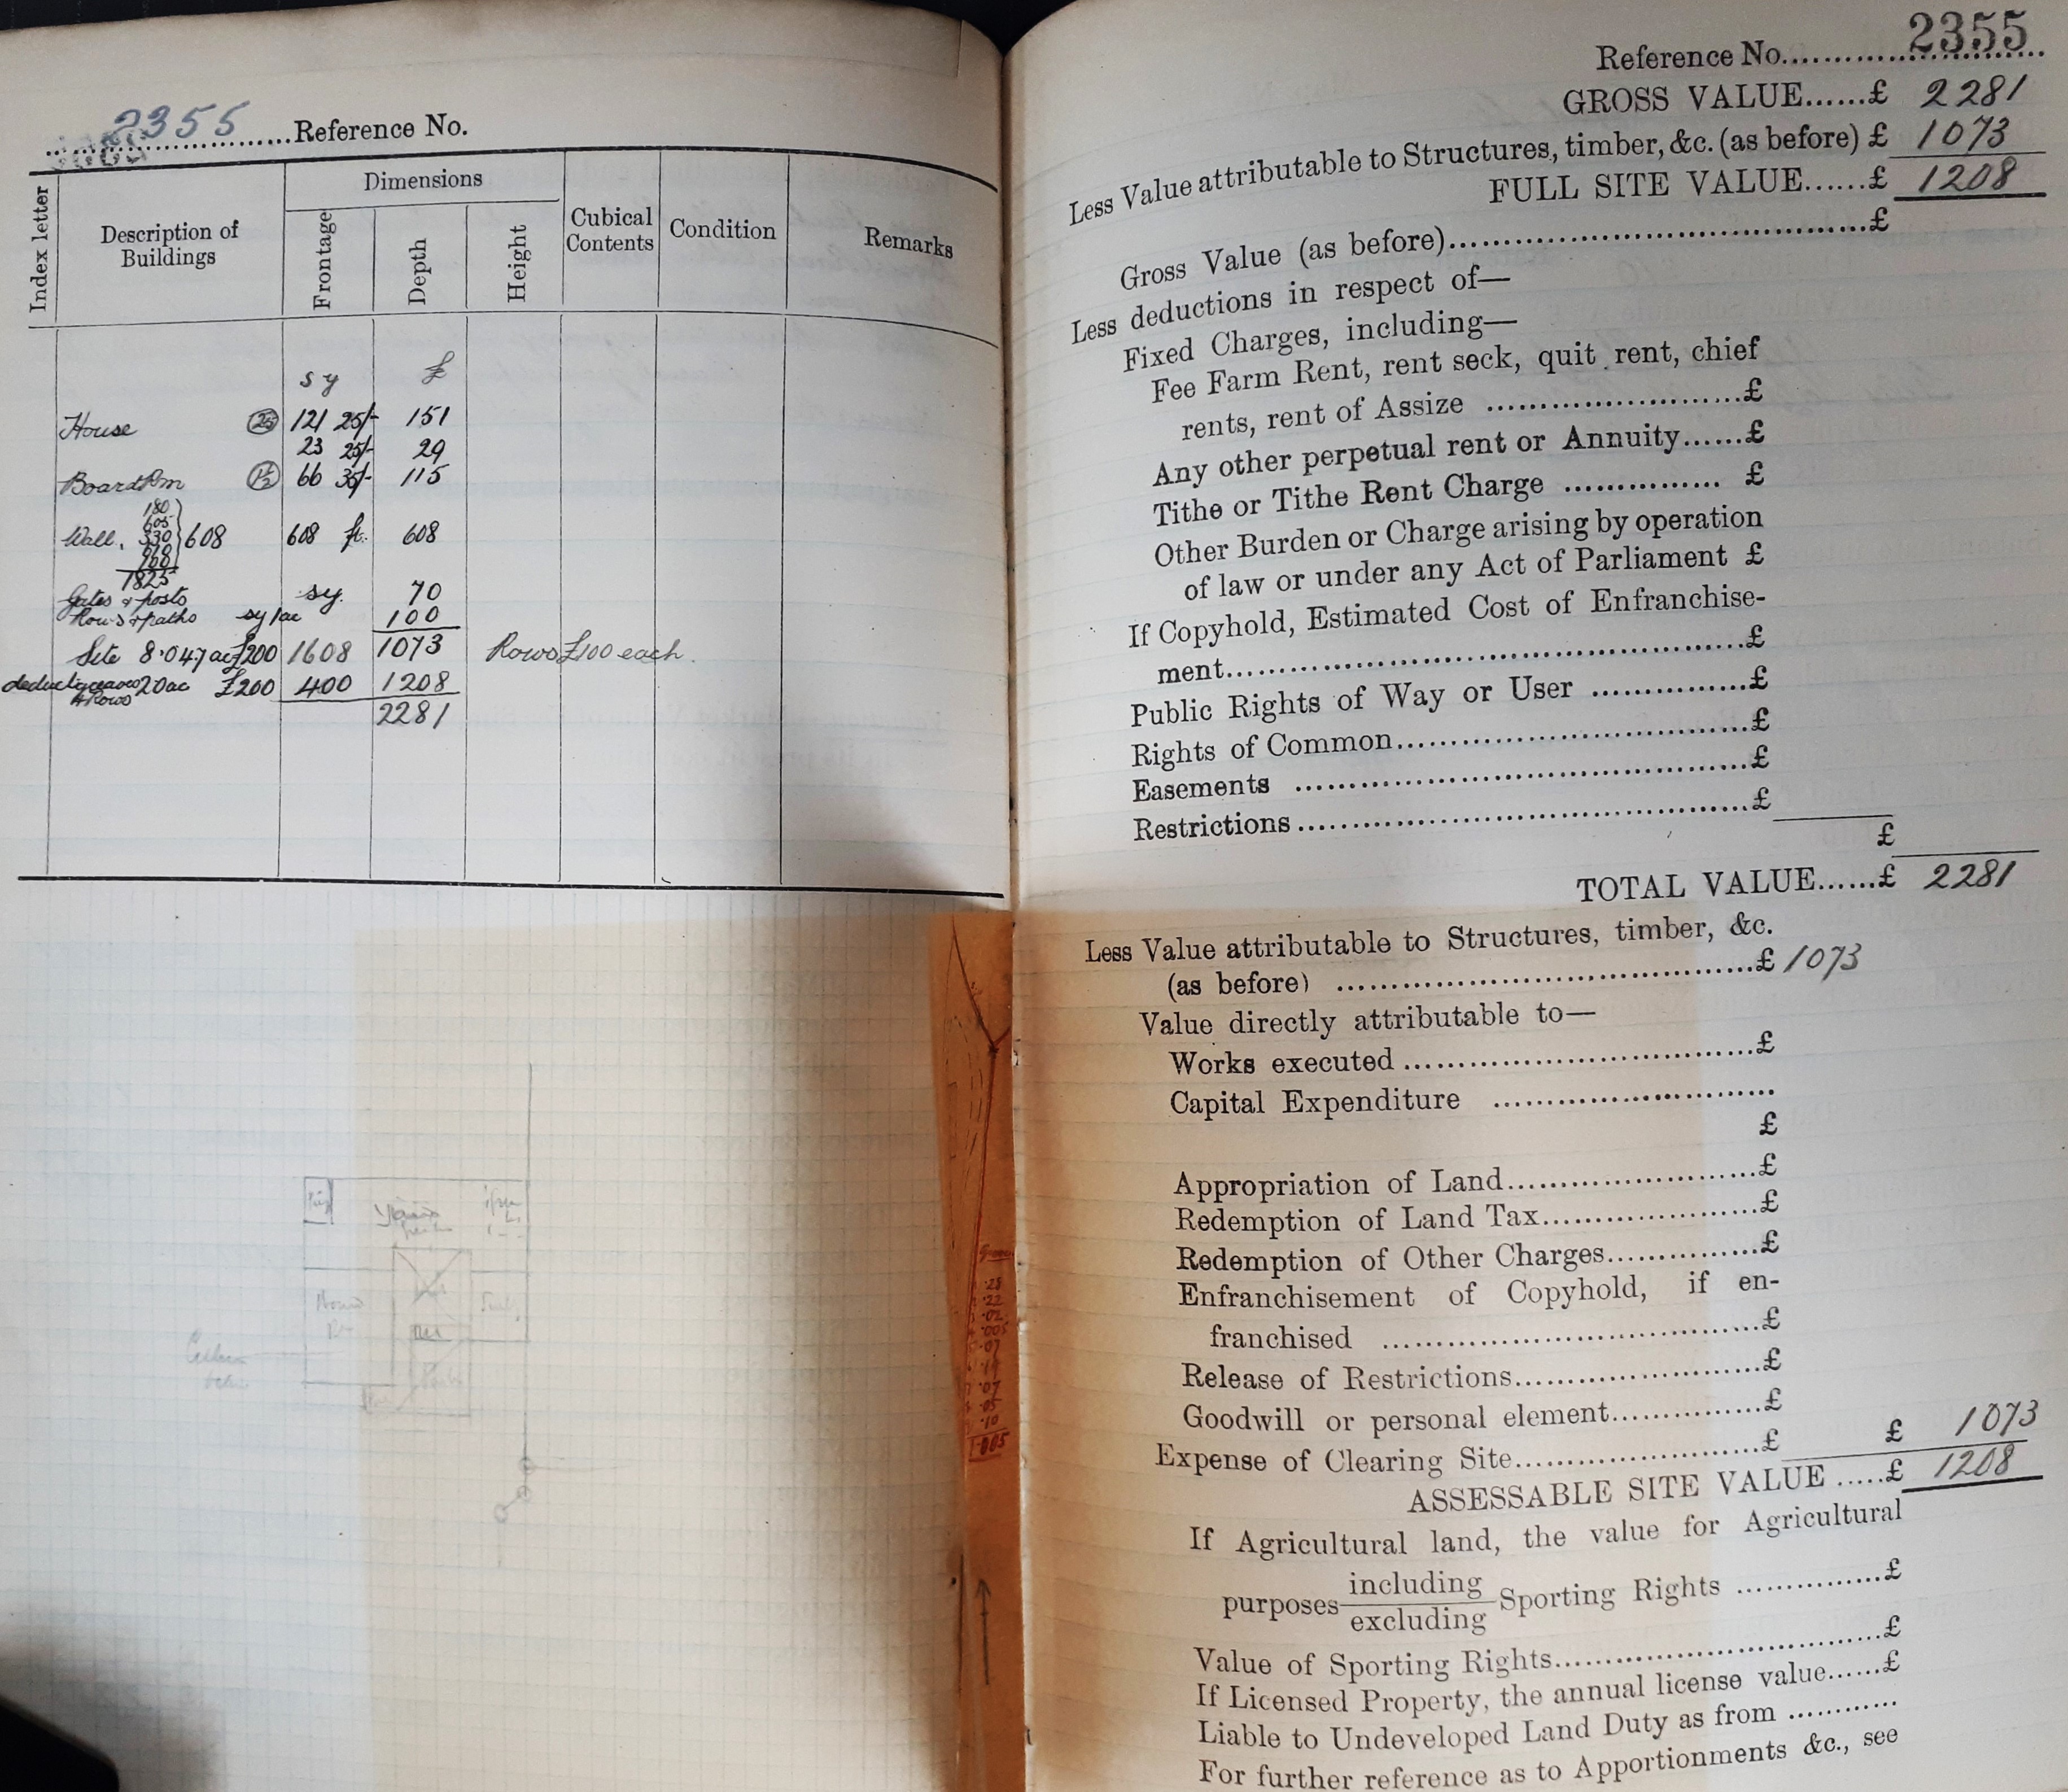 2355 Reference No.
Index letter
Description of Buildings
Dimensions
Frontage
Depth
Height
Cubical Contents
Condition
Remarks
sy £
House 25 121 25/- 151
23 25/- 29
Board Rm 66 35/- 115
180
605
Wall. 330 608 608 ft. 608
1825
Gates & posts sy. 70
Rows & paths sy/ac 100
Site 8.047 ac £200 1608 1073 Rows £100 each.
deduct 20ac £200 400 1208
4 Rows
2281
Reference No. 2355
GROSS VALUE......£ 2281
Less Value attributable to Structures, timber, &c. (as before) £ 1073
FULL SITE VALUE......£ 1208
Gross Value (as before)..........£
Less deductions in respect of—
Fixed Charges, including—
Fee Farm Rent, rent seck, quit rent, chief
rents, rent of Assize ..........£
Any other perpetual rent or Annuity......£
Tithe or Tithe Rent Charge .......... £
Other Burden or Charge arising by operation
of law or under any Act of Parliament £
If Copyhold, Estimated Cost of Enfranchise-
ment..........£
Public Rights of Way or User ..........£
Rights of Common..........£
Easements ..........£
Restrictions..........£
£
TOTAL VALUE......£ 2281
Less Value attributable to Structures, timber, &c.
(as before) ..........£ 1073
Value directly attributable to—
Works executed..........£
Capital Expenditure ..........
£
Appropriation of Land..........£
Redemption of Land Tax..........£
Redemption of Other Charges..........£
Enfranchisement of Copyhold, if en-
franchised ..........£
Release of Restrictions..........£
Goodwill or personal element..........£
Expense of Clearing Site..........£ £ 1073
ASSESSABLE SITE VALUE .....£ 1208
If Agricultural land, the value for Agricultural
purposes including excluding Sporting Rights ..........£
Value of Sporting Rights..........£
If Licensed Property, the annual license value......£
Liable to Undeveloped Land Duty as from ..........
For further reference as to Apportionments &c., see